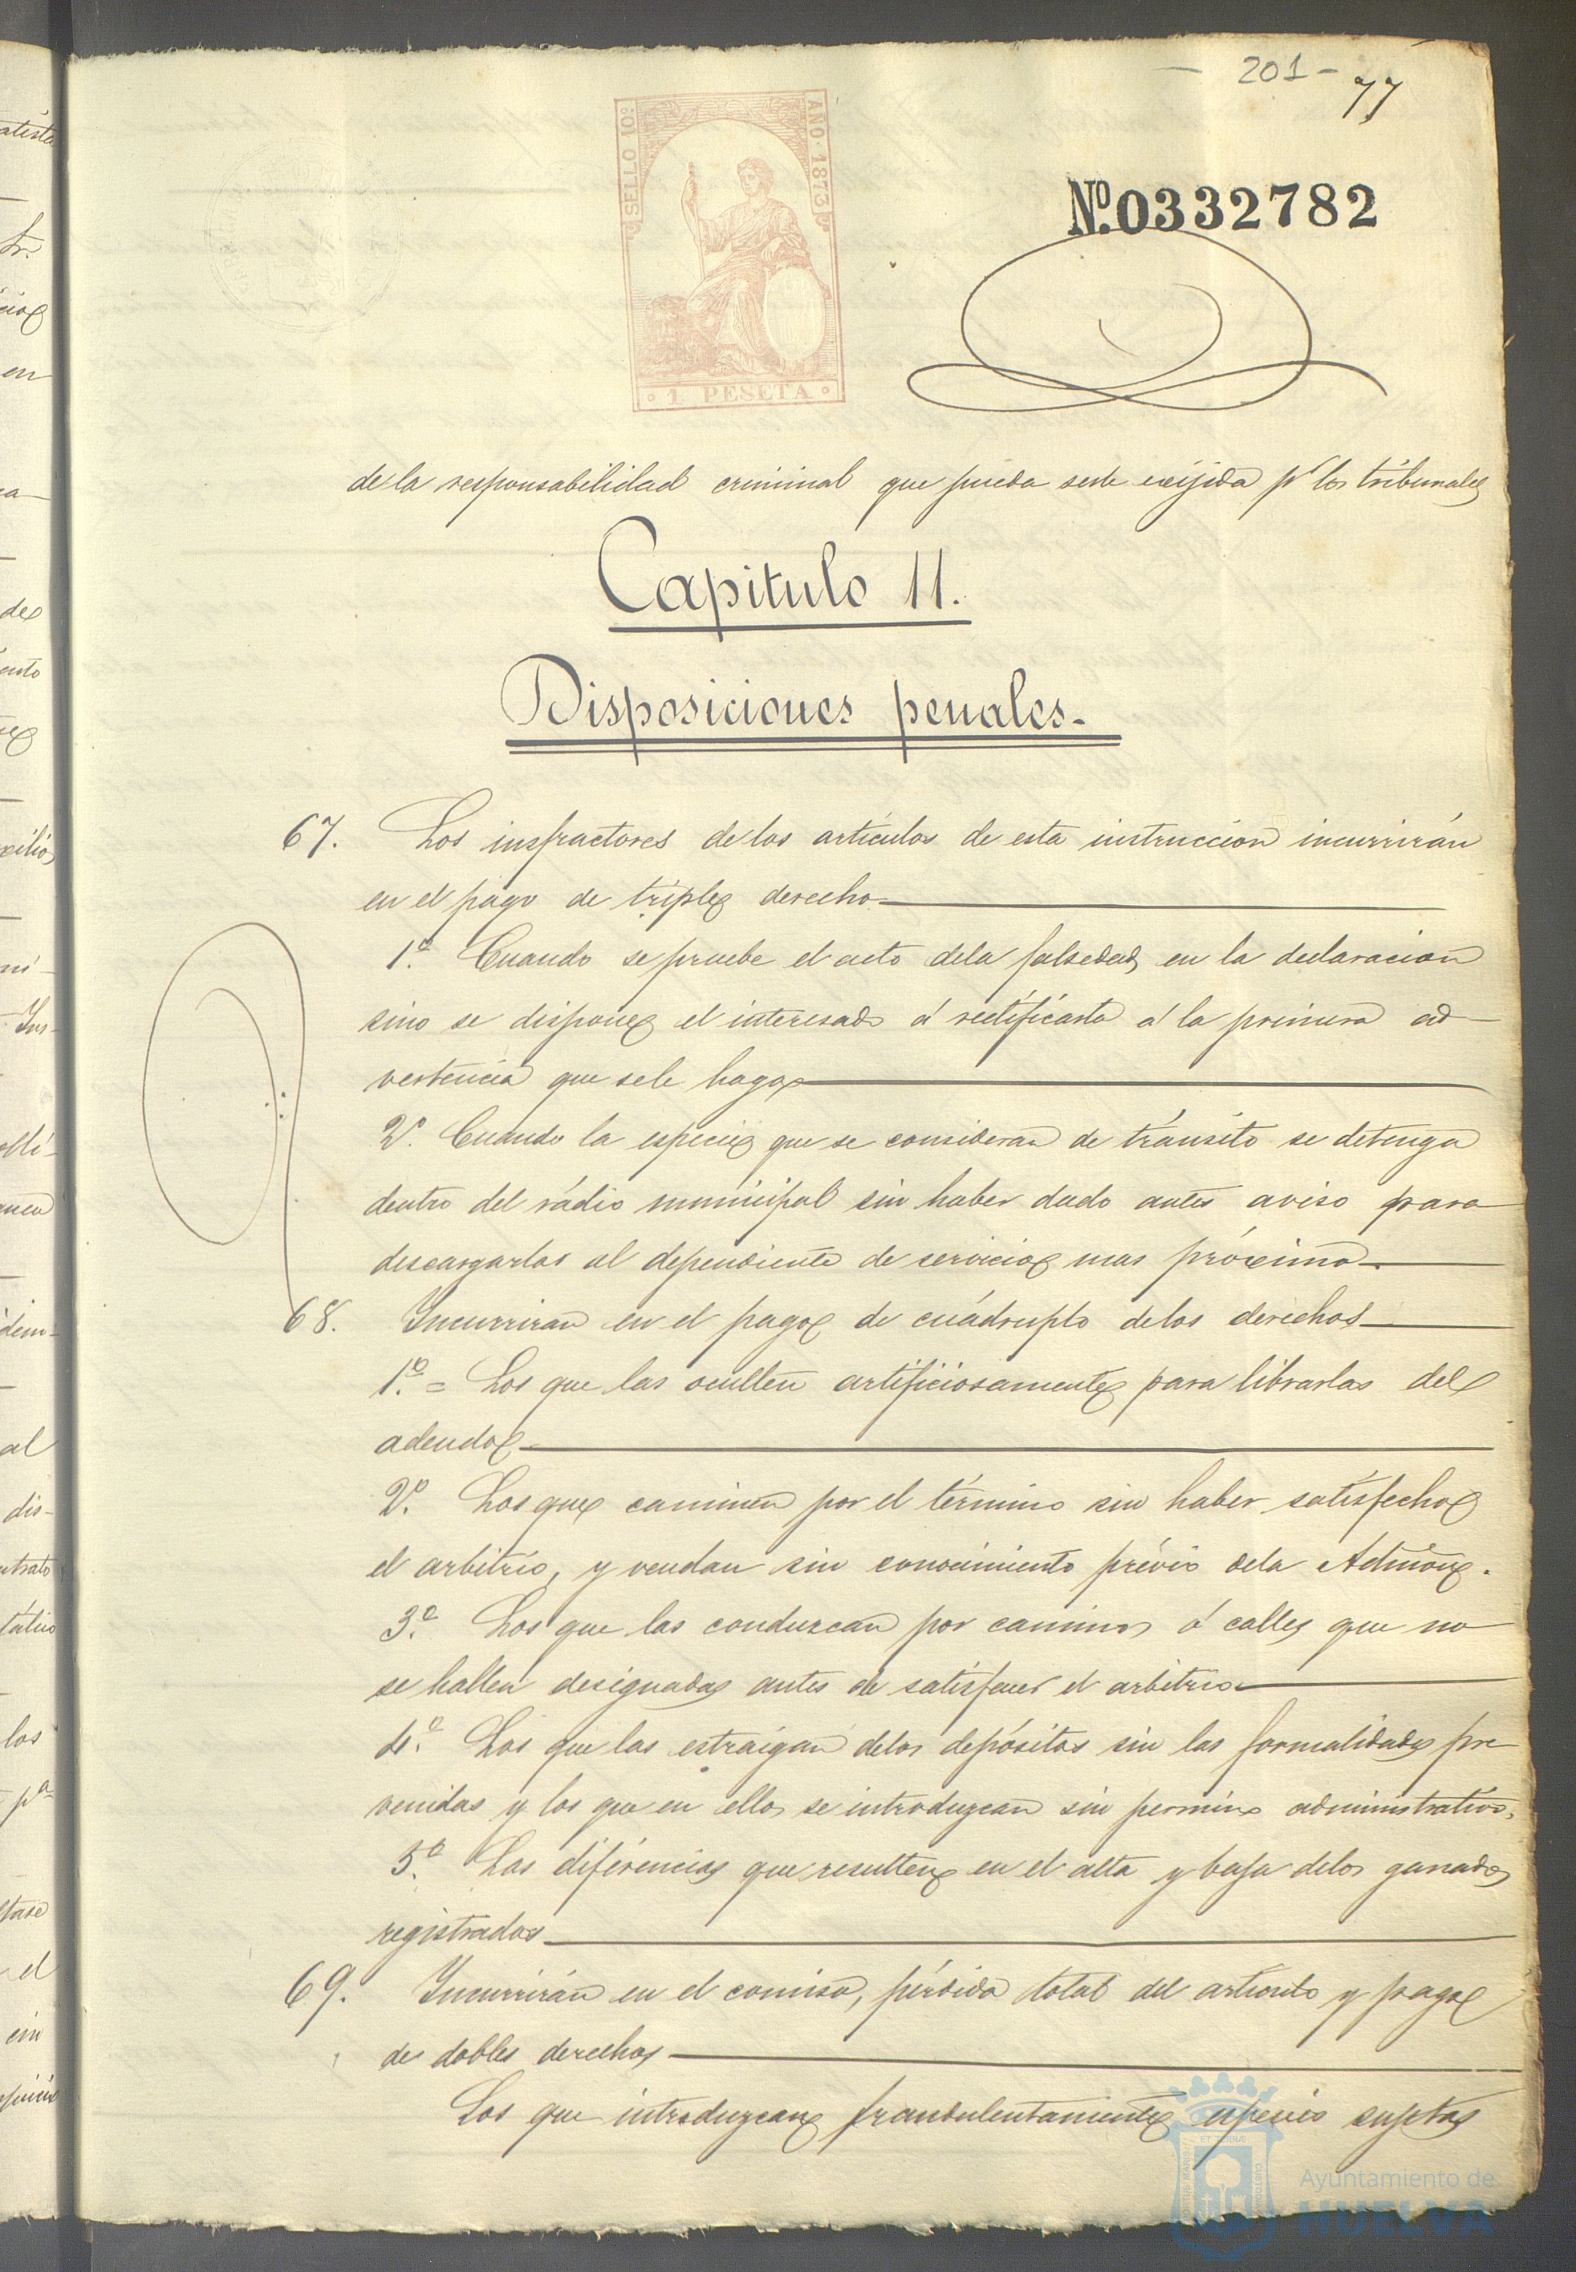 - 201 - 77
SELLO 10º
AÑO 1873
1 PESETA
Nº. 0332782
de la responsabilidad criminal que pueda serle exijida pr los tribunales
Capitulo 11.
Disposiciones penales.
67. Los insfractores de los artículos de esta instruccion incurrirán
en el pago de triple derecho
1º. Cuando se pruebe el acto dela falsedad en la declaracion
sino se dispone el interesado á rectificarla á la primera ad
vertencia que sele haga
2º. Cuando la especie que se consideran de tránsito se detenga
dentro del rádio municipal sin haber dado antes aviso para
descargarlas al dependiente de servicio mas próximo
68. Incurriran en el pago de cuádruplo delos derechos
1º. = Los que las oculten artificiosamente para librarlas del
adeudo
2º. Los que caminen por el término sin haber satisfecho
el arbitrio, y vendan sin conocimiento prévio dela Admion.
3º. Los que las conduzcan por caminos ó calles que no
se hallen designadas antes de satisfacer el arbitrio
4º. Los que las estraigan delos depósitos sin las formalidades pre
venidas y los que en ellos se introduzcan sin permiso administrativo,
5º. Las diferencias que resulten en el alta y baja delos ganados
registrados
69. Incurrirán en el comiso, pérdida total del artículo y pago
de dobles derechos
Los que introduzcan fraudulentamente especies sujetas
Ayuntamiento de
HUELVA